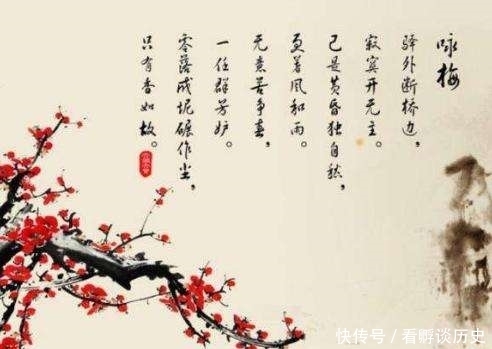 咏梅
驿外断桥边，
寂寞开无主。
已是黄昏独自愁，
更著风和雨。
无意苦争春，
一任群芳妒。
零落成泥碾作尘，
只有香如故。
快传号 / 看孵谈历史